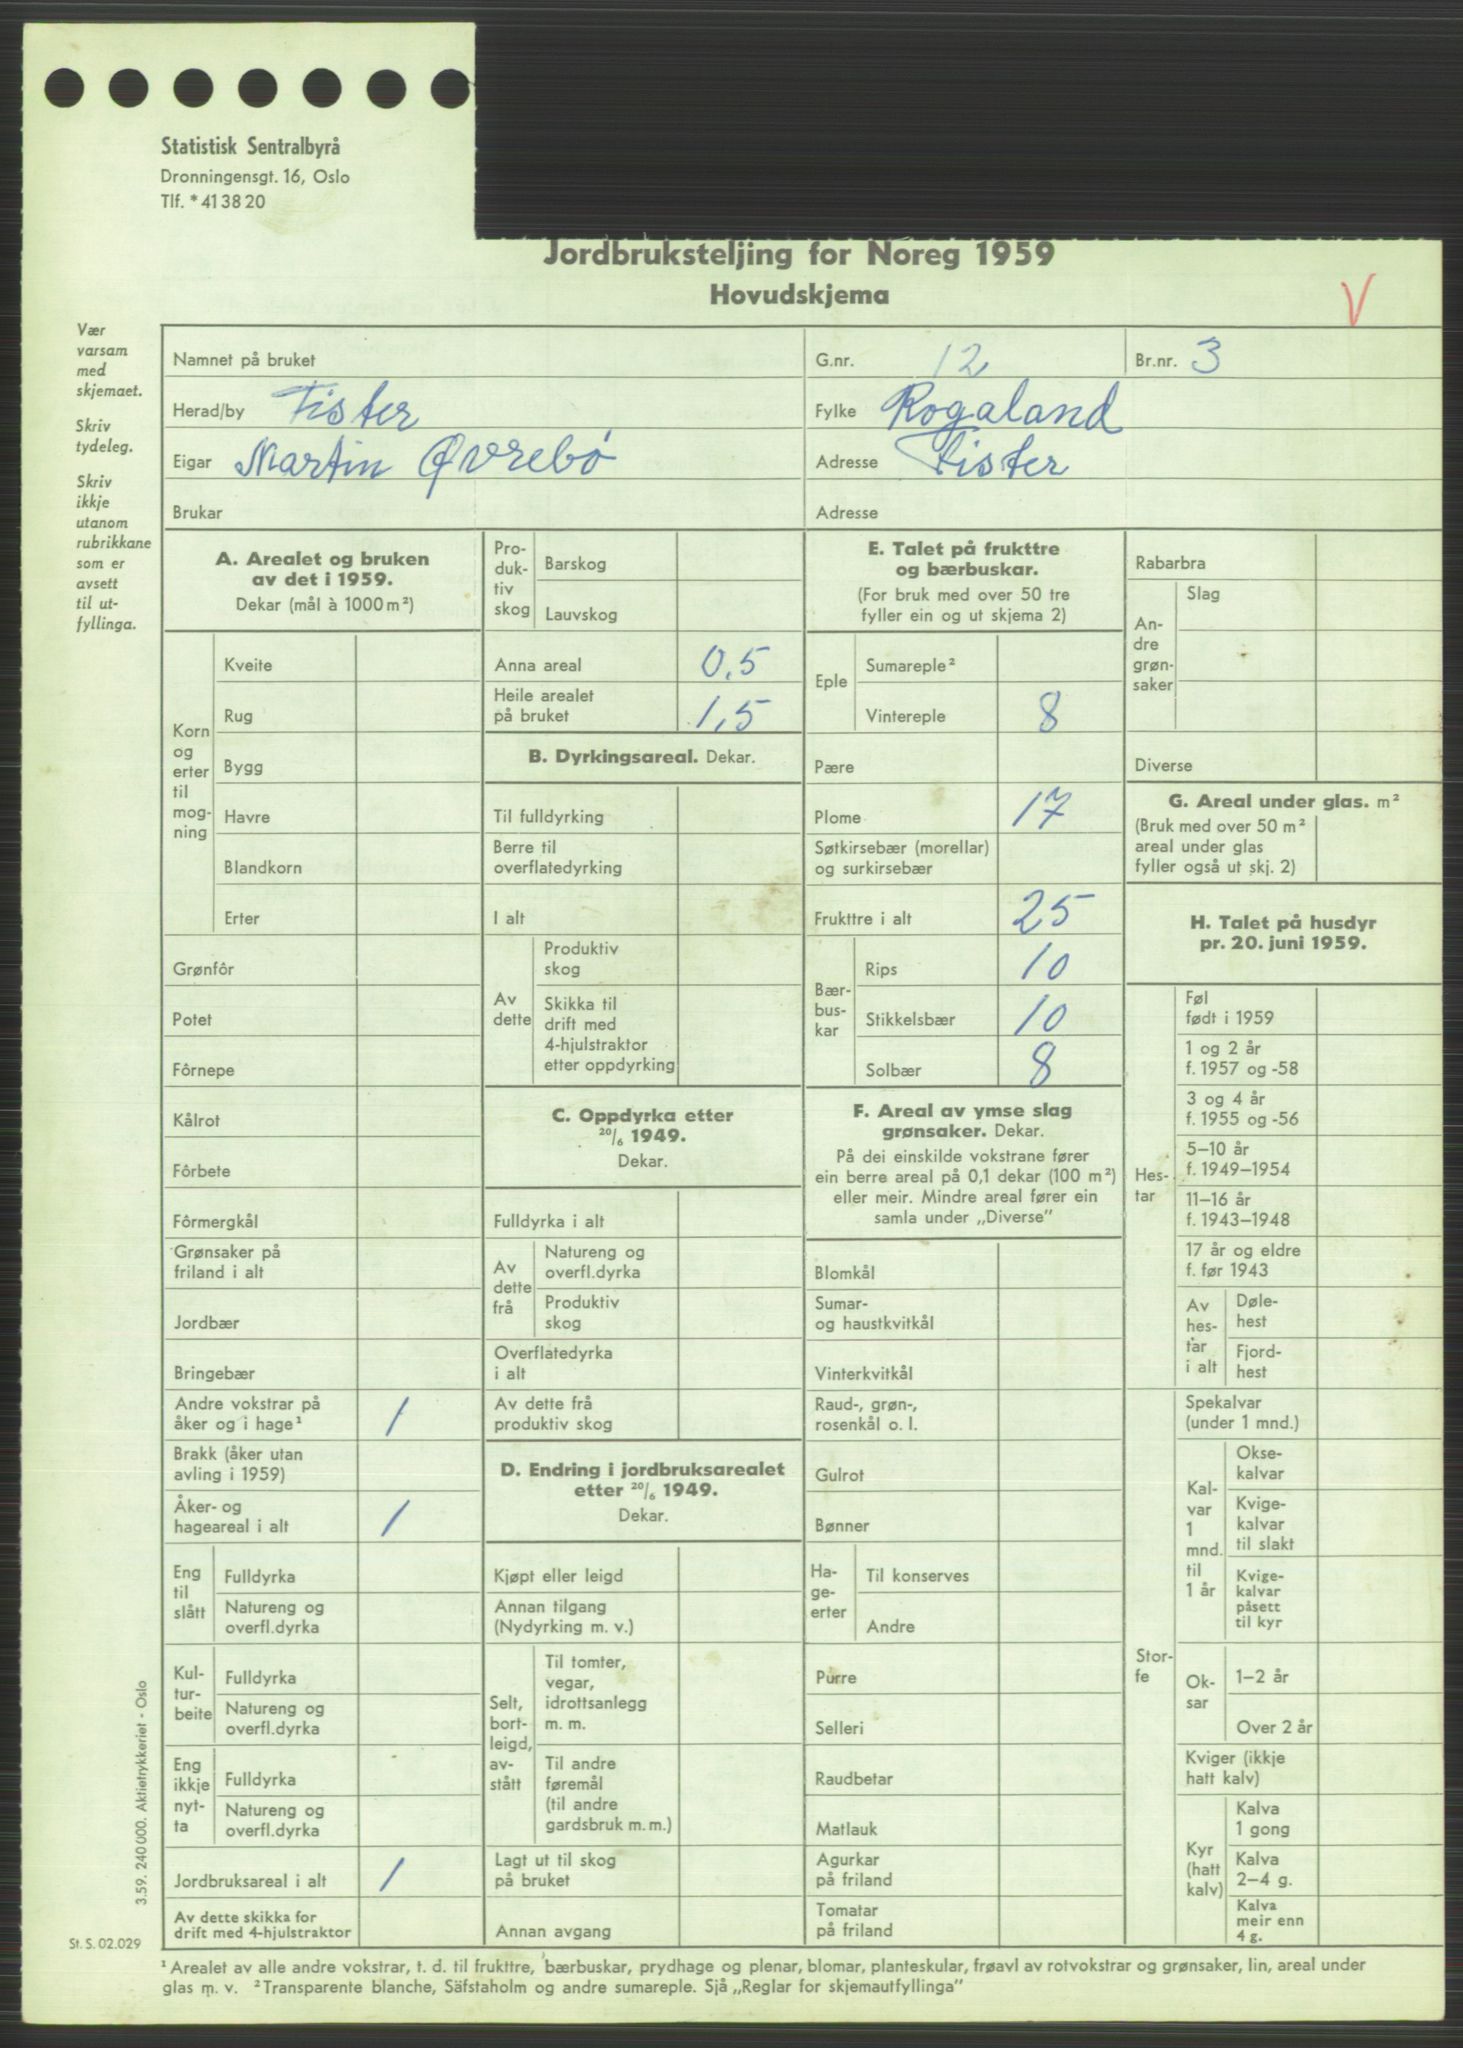 Statistisk Sentralbyrå
Dronningensgt. 16, Oslo
Tlf. * 41 38 20
Jordbruksteljing for Noreg 1959
Hovudskjema
V
Vær
varsam
med
skjemaet.
Skriv
tydeleg.
Skriv
ikkje
utanom
rubrikkane
som er
avsett
til ut-
fyllinga.
Namnet på bruket
G.nr. 12
Br.nr. 3
Herad/by Fister
Fylke Rogaland
Eigar Martin Øvrebø
Adresse Fister
Brukar
Adresse
A. Arealet og bruken
av det i 1959.
Dekar (mål à 1000 m²)
Korn
og
erter
til
mog-
ning
Kveite
Rug
Bygg
Havre
Blandkorn
Erter
Grønfôr
Potet
Fôrnepe
Kålrot
Fôrbete
Fôrmergkål
Grønsaker på
friland i alt
Jordbær
Bringebær
Andre vokstrar på
åker og i hage¹ 1
Brakk (åker utan
avling i 1959)
Åker- og
hageareal i alt 1
Eng
til
slått
Fulldyrka
Natureng og
overfl.dyrka
Kul-
tur-
beite
Fulldyrka
Natureng og
overfl.dyrka
Eng
ikkje
nyt-
ta
Fulldyrka
Natureng og
overfl.dyrka
Jordbruksareal i alt 1
Av dette skikka for
drift med 4-hjulstraktor
Pro-
duk-
tiv
skog
Barskog
Lauvskog
Anna areal 0,5
Heile arealet
på bruket 1,5
B. Dyrkingsareal. Dekar.
Til fulldyrking
Berre til
overflatedyrking
I alt
Av
dette
Produktiv
skog
Skikka til
drift med
4-hjulstraktor
etter oppdyrking
C. Oppdyrka etter
20/6 1949.
Dekar.
Fulldyrka i alt
Av
dette
frå
Natureng og
overfl.dyrka
Produktiv
skog
Overflatedyrka
i alt
Av dette frå
produktiv skog
D. Endring i jordbruksarealet
etter 20/6 1949.
Dekar.
Kjøpt eller leigd
Annan tilgang
(Nydyrking m. v.)
Selt,
bort-
leigd,
av-
stått
Til tomter,
vegar,
idrottsanlegg
m. m.
Til andre
føremål
(til andre
gardsbruk m. m.)
Lagt ut til skog
på bruket
Annan avgang
E. Talet på frukttre
og bærbuskar.
(For bruk med over 50 tre
fyller ein og ut skjema 2)
Eple
Sumareple²
Vintereple 8
Pære
Plome 17
Søtkirsebær (morellar)
og surkirsebær
Frukttre i alt 25
Bær-
bus-
kar
Rips 10
Stikkelsbær 10
Solbær 8
F. Areal av ymse slag
grønsaker. Dekar.
På dei einskilde vokstrane fører
ein berre areal på 0,1 dekar (100 m²)
eller meir. Mindre areal fører ein
samla under „Diverse”
Blomkål
Sumar-
og haustkvitkål
Vinterkvitkål
Raud-, grøn-,
rosenkål o. l.
Gulrot
Bønner
Ha-
ge-
erter
Til konserves
Andre
Purre
Selleri
Raudbetar
Matlauk
Agurkar
på friland
Tomatar
på friland
Rabarbra
An-
dre
grøn-
saker
Slag
Diverse
G. Areal under glas. m²
(Bruk med over 50 m²
areal under glas
fyller også ut skj. 2)
H. Talet på husdyr
pr. 20. juni 1959.
Hes-
tar
Føl
født i 1959
1 og 2 år
f. 1957 og -58
3 og 4 år
f. 1955 og -56
5–10 år
f. 1949–1954
11–16 år
f. 1943–1948
17 år og eldre
f. før 1943
Av
hes-
tar
i alt
Døle-
hest
Fjord-
hest
Stor-
fe
Spekalvar
(under 1 mnd.)
Kal-
var
1
mnd.
til
1 år
Okse-
kalvar
Kvige-
kalvar
til slakt
Kvige-
kalvar
påsett
til kyr
Ok-
sar
1–2 år
Over 2 år
Kviger (ikkje
hatt kalv)
Kyr
(hatt
kalv)
Kalva
1 gong
Kalva
2–4 g.
Kalva
meir enn
4 g.
3.59. 240 000. Aktietrykkeriet - Oslo
St. S. 02.029
¹ Arealet av alle andre vokstrar, t. d. til frukttre, bærbuskar, prydhage og plenar, blomar, planteskular, frøavl av rotvokstrar og grønsaker, lin, areal under
glas m. v. ² Transparente blanche, Säfstaholm og andre sumareple. Sjå „Reglar for skjemautfyllinga”